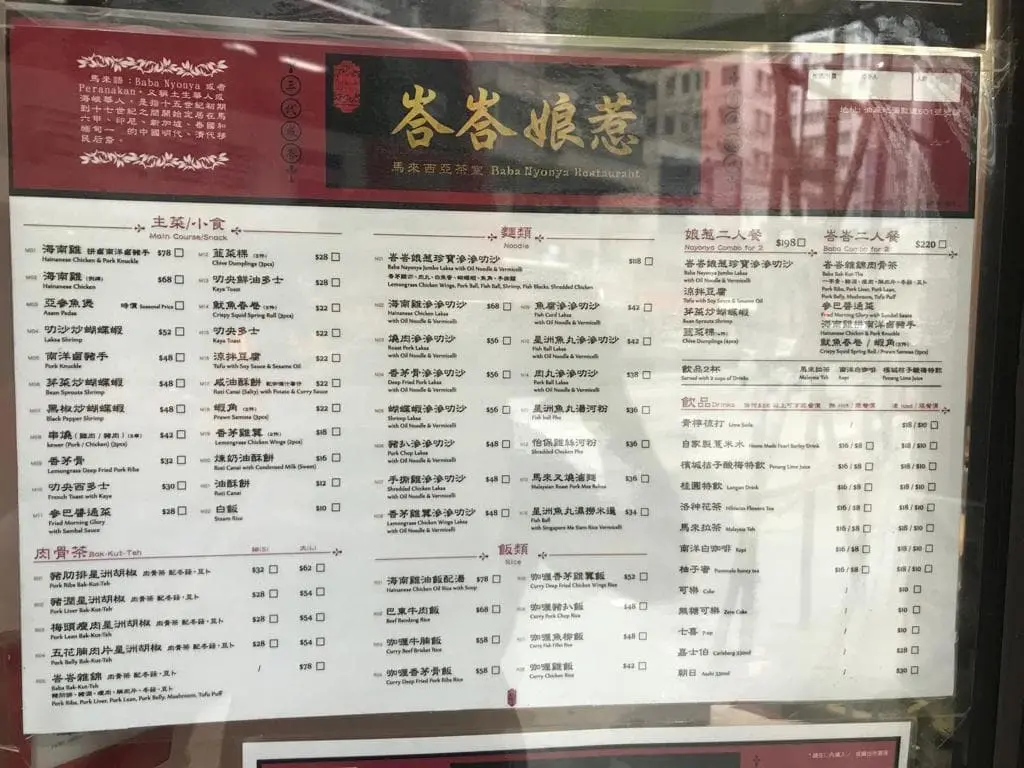 馬來語:Baba Nyonya 或者
Peranakan,又稱土生華人或
海峽華人,是指十五世紀初期
到十七世紀之間開始定居在馬
六甲、印尼、新加坡、泰國和
緬甸一帶的中國明代、清代移
民后裔。
峇峇娘惹
馬來西亞茶室 Baba Nyonya Restaurant
主菜/小食
Main Course/Snack
海南雞 拼鹵南洋鹵豬手 $78
Hainanese Chicken & Pork Knuckle
海南雞 (例牌) $68
Hainanese Chicken
亞參魚煲 時價 Seasonal Price
Asam Pedas
叻沙炒蝴蝶蝦 $52
Laksa Shrimp
南洋鹵豬手 $48
Pork Knuckle
芽菜炒蝴蝶蝦 $48
Bean Sprouts Shrimp
黑椒炒蝴蝶蝦 $48
Black Pepper Shrimp
串燒 (雞肉 / 豬肉) $42
香茅骨 $32
Lemongrass Deep Fried Pork Ribs
叻央西多士 $30
French Toast with Kaya
參巴醬通菜 $28
Fried Morning Glory
with Sambal Sauce
韮菜粿 $28
Chive Dumplings (2pcs)
叻央鮮油多士 $28
Kaya Toast
魷魚春卷 $28
Crispy Squid Spring Roll (2pcs)
叻央多士 $22
Kaya Toast
涼拌豆腐 $22
Tofu with Soy Sauce & Sesame Oil
咸油酥餅 $22
Roti Canai (Salty) with Potato & Curry Sauce
蝦角 $22
Prawn Samosa (2pcs)
香茅雞翼 $18
Lemongrass Chicken Wings (2pcs)
煉奶油酥餅 $16
Roti Canai with Condensed Milk (Sweet)
油酥餅 $12
Roti Canai
白飯 $10
Steam Rice
肉骨茶 Bak-Kut-Teh
豬肋排星洲胡椒 肉骨茶 配冬菇,豆卜 $32 $62
Pork Ribs Bak-Kut-Teh
豬潤星洲胡椒 肉骨茶 配冬菇,豆卜 $28 $54
Pork Liver Bak-Kut-Teh
梅頭瘦肉星洲胡椒 肉骨茶 配冬菇,豆卜 $28 $54
Pork Lean Bak-Kut-Teh
五花腩肉片星洲胡椒 肉骨茶 配冬菇,豆卜 $28 $54
Pork Belly Bak-Kut-Teh
峇峇雜錦 肉骨茶 配冬菇,豆卜 / $78
Baba Bak-Kut-Teh
Pork Ribs, Pork Liver, Pork Lean, Pork Belly, Mushroom, Tofu Puff
麵類
Noodle
峇峇娘惹珍寶滲滲叻沙 $118
Baba Nyonya Jumbo Laksa with Oil Noodle & Vermicelli
Lemongrass Chicken Wings, Pork Ball, Fish Ball, Shrimp, Fish Blocks, Shredded Chicken
海南雞滲滲叻沙 $68
Hainanese Chicken Laksa
with Oil Noodle & Vermicelli
燒肉滲滲叻沙 $56
Roast Pork Laksa
with Oil Noodle & Vermicelli
香茅骨滲滲叻沙 $56
Deep Fried Pork Laksa
with Oil Noodle & Vermicelli
蝴蝶蝦滲滲叻沙 $56
Shrimp Laksa
with Oil Noodle & Vermicelli
豬扒滲滲叻沙 $48
Pork Chop Laksa
with Oil Noodle & Vermicelli
手撕雞滲滲叻沙 $48
Shredded Chicken Laksa
with Oil Noodle & Vermicelli
香茅雞翼滲滲叻沙 $48
Lemongrass Chicken Wings Laksa
with Oil Noodle & Vermicelli
魚腐滲滲叻沙 $42
Fish Curd Laksa
with Oil Noodle & Vermicelli
星洲魚丸滲滲叻沙 $42
Fish Ball Laksa
with Oil Noodle & Vermicelli
肉丸滲滲叻沙 $38
Pork Ball Laksa
with Oil Noodle & Vermicelli
星洲魚丸湯河粉 $36
Fish ball Pho
怡保雞絲河粉 $36
Shredded Chicken Pho
馬來叉燒滷麵 $36
星洲魚丸濕撈米暹 $34
Fish Ball
with Singapore Me Siam Rice Vermicelli
飯類
Rice
海南雞油飯配湯 $78
Hainanese Chicken Oil Rice with Soup
巴東牛肉飯 $68
Beef Rendang Rice
咖喱牛腩飯 $58
Curry Beef Brisket Rice
咖喱香茅骨飯 $58
Curry Deep Fried Pork Ribs Rice
咖喱香茅雞翼飯 $52
Curry Deep Fried Chicken Wings Rice
咖喱豬扒飯 $48
Curry Pork Chop Rice
咖喱魚柳飯 $48
Curry Fish Fillet Rice
咖喱雞飯 $42
Curry Chicken Rice
娘惹二人餐 $198
Nyonya Combo for 2
峇峇娘惹珍寶滲滲叻沙
Baba Nyonya Jumbo Laksa
with Oil Noodle & Vermicelli
涼拌豆腐
Tofu with Soy Sauce & Sesame Oil
芽菜炒蝴蝶蝦
Bean Sprouts Shrimp
韮菜粿
Chive Dumplings (4pcs)
峇峇二人餐 $220
Baba Combo for 2
峇峇雜錦肉骨茶
Baba Bak-Kut-Teh
Pork Ribs, Pork Liver, Pork Lean,
Pork Belly, Mushroom, Tofu Puff
參巴醬通菜
Fried Morning Glory with Sambal Sauce
海南雞拼南洋鹵豬手
Hainanese Chicken & Pork Knuckle
魷魚春卷 / 蝦角
Crispy Squid Spring Roll / Prawn Samosa (2pcs)
飲品2杯
Served with 2 cups of Drinks
馬來拉茶 南洋白咖啡 檳城桔子酸梅特飲
Malaysia Teh Kopi Penang Lime Juice
飲品 Drinks
青檸梳打 Lime Soda / $18 / $10
自家製薏米水 Home Made Pearl Barley Drink $16 / $8 $18 / $10
檳城桔子酸梅特飲 Penang Lime Juice $16 / $8 $18 / $10
桂圓特飲 Longan Drink $16 / $8 $18 / $10
洛神花茶 Hibiscus Flowers Tea $16 / $8 $18 / $10
馬來拉茶 Malaysia Teh $16 / $8 $18 / $10
南洋白咖啡 Kopi $16 / $8 $18 / $10
柚子蜜 Pommelo honey tea $16 / $8 $18 / $10
可樂 Coke / $10
無糖可樂 Zero Coke / $10
七喜 7-up / $10
嘉士伯 Carlsberg 330ml / $28
朝日 Asahi 330ml / $30